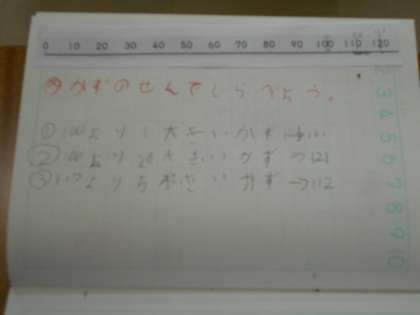 0 10 20 30 40 50 60 70 80 90 100 110 120
め かずのせんでしらべよう。
① 100より1大きいかず→101
② 100より 大きいかず→121
③ より5小さいかず→112
2 3 4 5 6 7 8 9 10